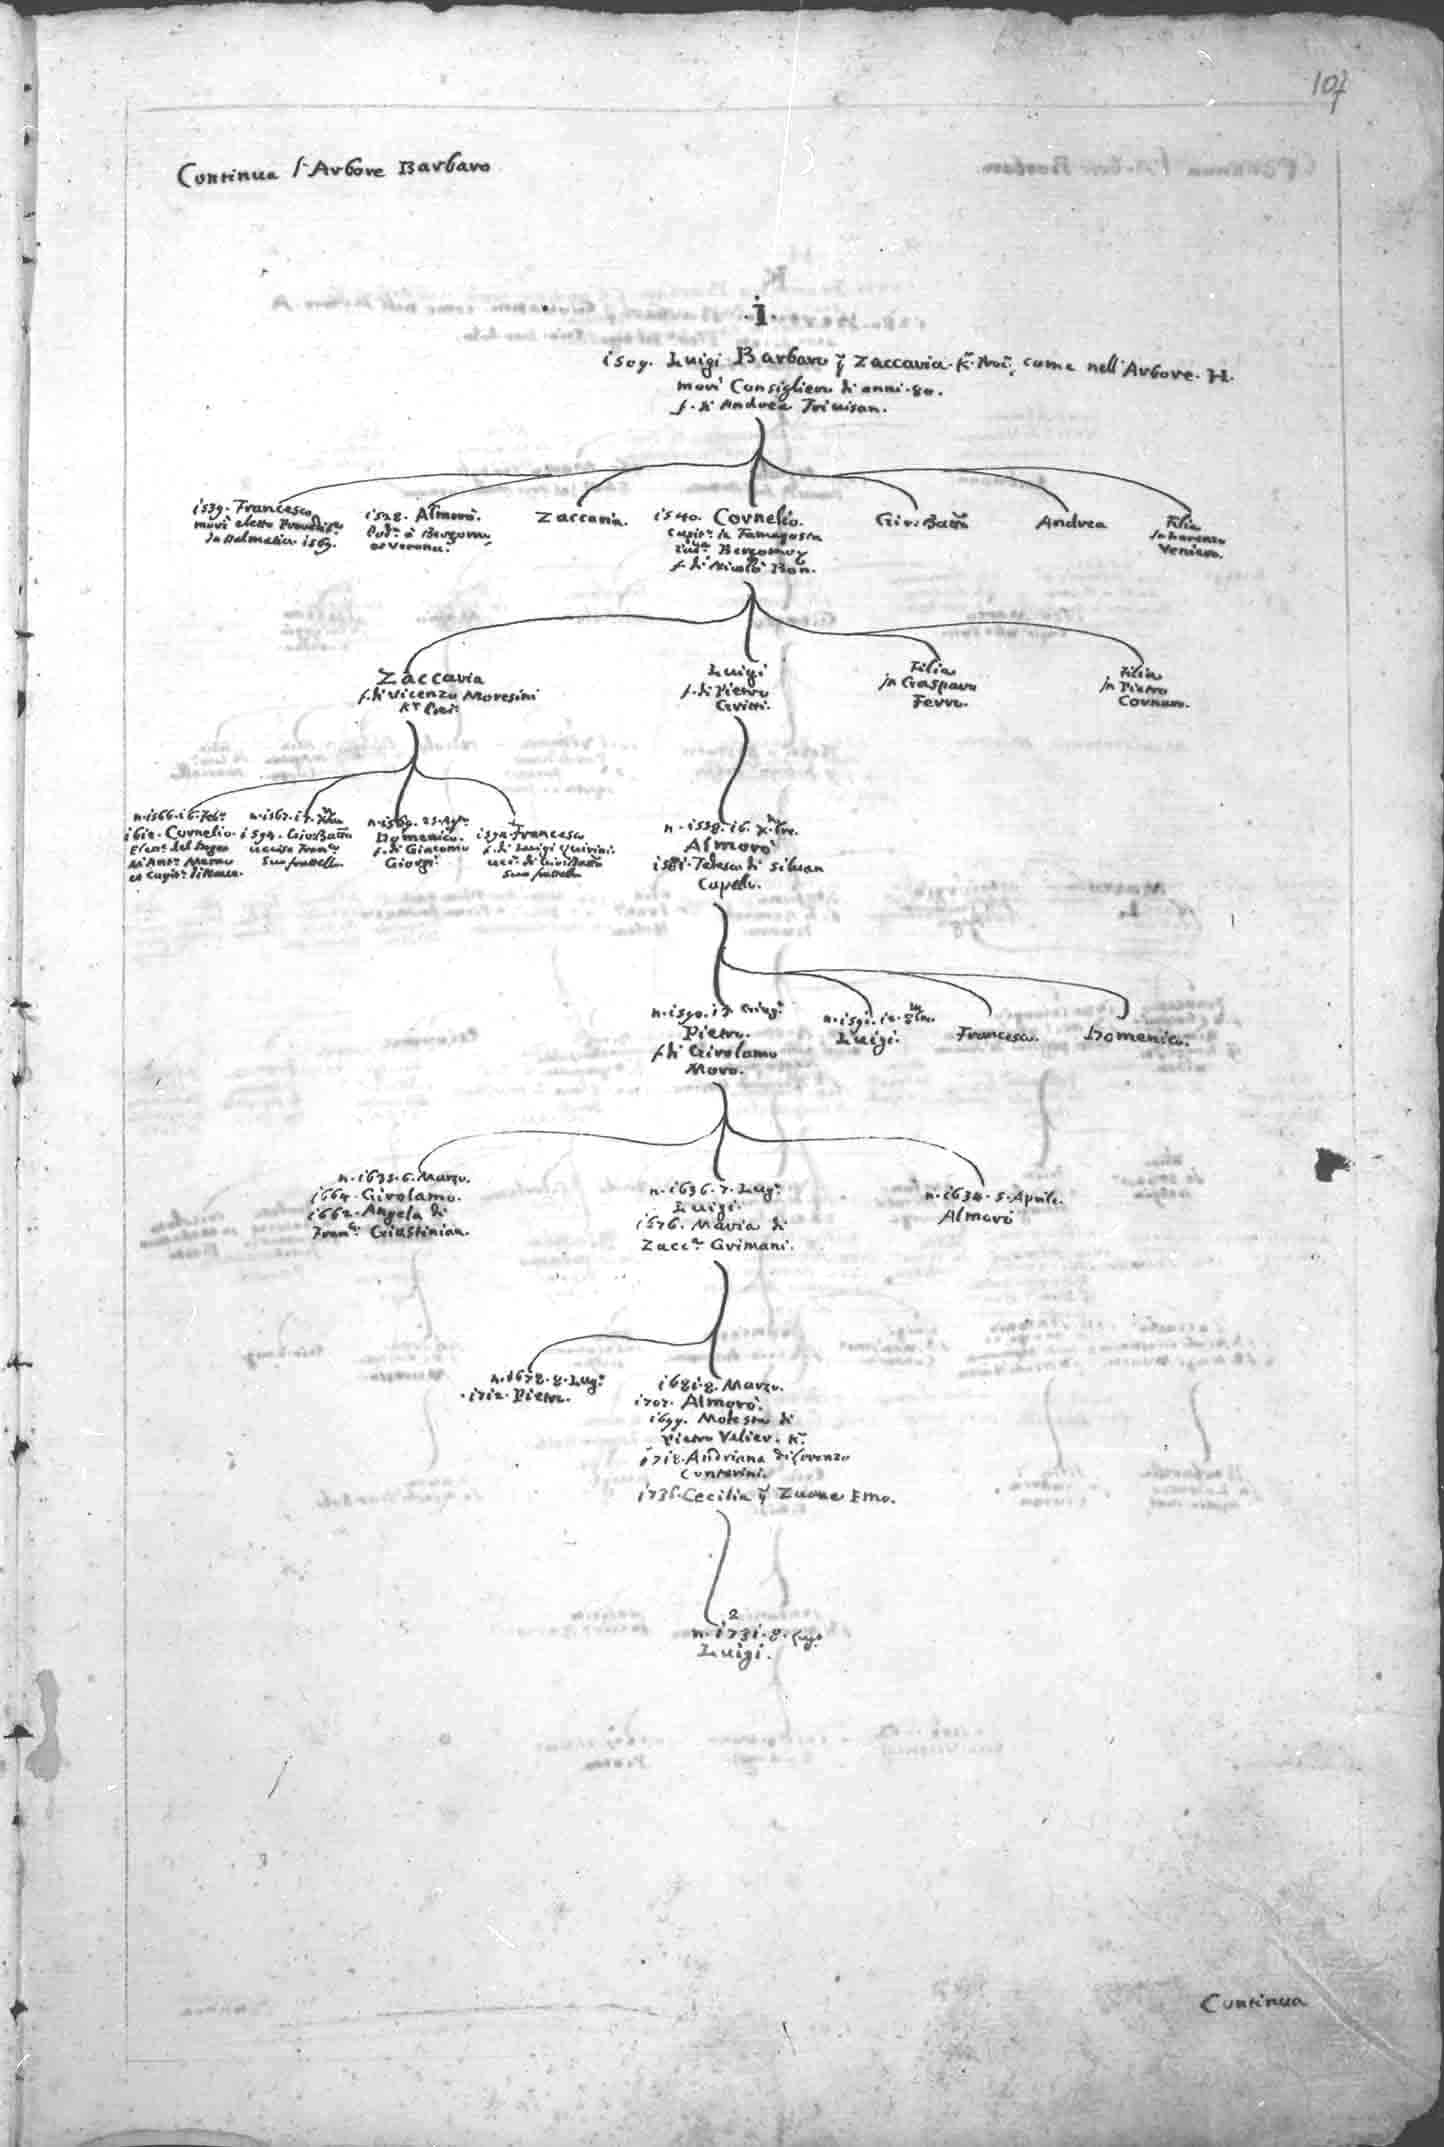 107
Continua l'Arbore Barbaro
.I.
i509. Luigi Barbaro q Zaccaria. Kr. Proc. come nell'Arbore. H.
morì Consiglier di anni. 80.
f. di Andrea Trivisan.
i539. Francesco
morì eletto
in Dalmatia i569.
i528. Almorò.
Pod.à à Bergomo,
et Verona.
Zaccaria.
i540. Cornelio.
Capit.o in Famagosta
Bergomo
f. di Nicolò Bon.
Gio: Batta
Andrea
Filia
in Lorenzo
Veniero.
Zaccaria
f. di Vicenzo Moresini
Kr. Proc.
Luigi
f. di Pietro
Gritti.
Filia
in Gasparo
Ferro.
Filia
in Pietro
Cornaro.
n. i566. i6.
i612. Cornelio.
del Doge
di Ant.o Memo
et Capit.o
n. i567. i7.
i594. Gio: Batta
ucciso Franc.o
suo fratello.
n. i569. 25. Ag.o
Domenico.
f. di Giacomo
Giorgi.
i592. Francesco
f. di Luigi Quirini.
ucc. di Gio: Batta
suo fratello
n. i558. i6. Xbre.
Almorò
i58i. Tadea di Silvan
Capello.
n. i590. i7. Giug.o
Pietro.
f. di Girolamo
Moro.
n. i59i. i2. 8bre.
Luigi.
Francesco.
Domenico.
n. i635. 6. Marzo.
i664. Girolamo.
i662. Angela di
Franc.o Giustinian.
n. i636. 7. Lug.o
Luigi.
i676. Maria di
Zacc.a Grimani.
n. i634. 5. Aprile.
Almorò
n. i678. 8. Lug.o
i7i2. Pietro.
i68i. 8. Marzo.
i707. Almorò.
i699. Modesta di
Pietro Valier. Kr.
i7i8. Andriana di Lorenzo
Contarini.
i736. Cecilia q Zuane Emo.
2
n. i73i. 8. Lug.o
Luigi.
Continua